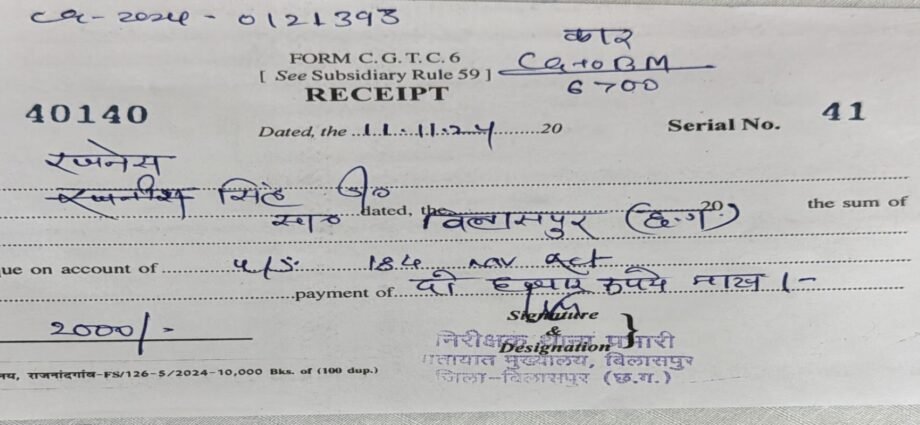 CG-2024-0121393
कार
FORM C.G.T.C.6
[ See Subsidiary Rule 59 ]
CG10BM
6700
RECEIPT
40140
Dated, the 11.11.24 20
Serial No. 41
रजनेस
रजनीश सिंह
स्था0 dated, the बिलासपुर (छ.ग.) 20 the sum of
ue on account of u/s. 184 MV Act
payment of दो हजार रुपये मात्र /-
Signature
2000/-
&
Designation
निरीक्षक थाना प्रभारी
यातायात मुख्यालय, बिलासपुर
नय, राजनांदगांव-FS/126-5/2024-10,000 Bks. of (100 dup.)
जिला-बिलासपुर (छ.ग.)